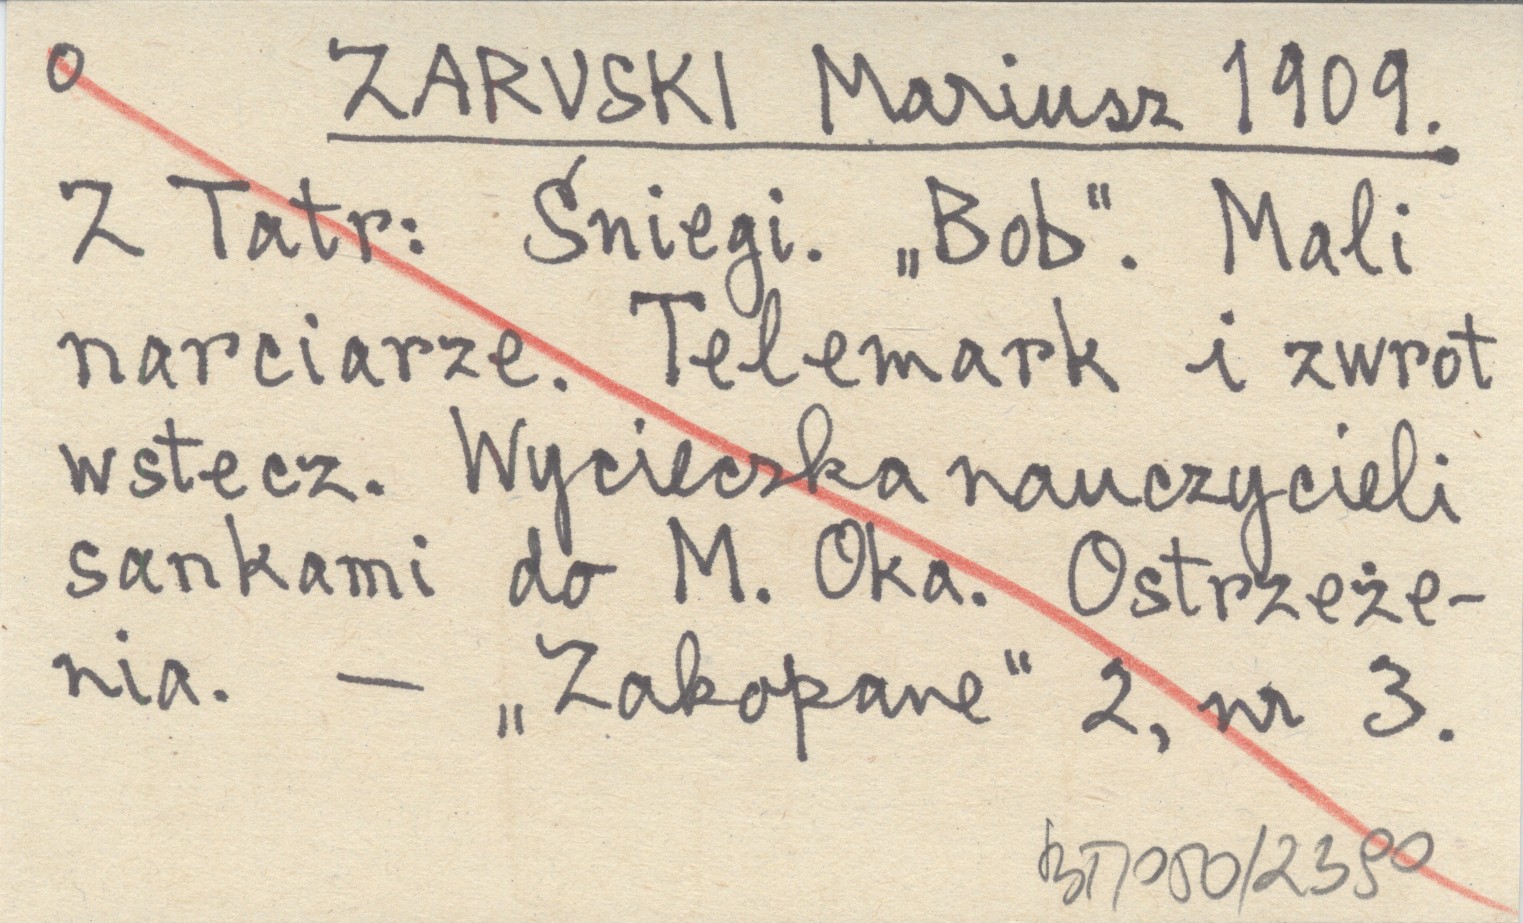 o ZARUSKI Mariusz 1909.
Z Tatr: Śniegi. „Bob". Mali
narciarze. Telemark i zwrot
wstecz. Wycieczka nauczycieli
sankami do M. Oka. Ostrzeże-
nia. — „Zakopane" 2, nr 3.